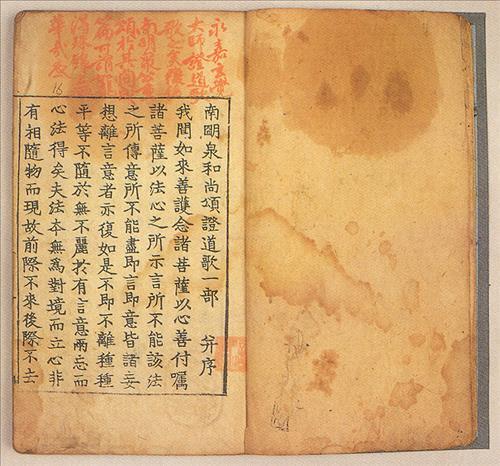 永嘉玄覺
大師證道歌
南明泉公
篇可謂
16
南明泉和尚頌證道歌一部 并序
我聞如來善護念諸菩薩以心善付囑
諸菩薩以法心之所示言所不能該法
之所傳意所不能盡即言即意皆諸妄
想離言意者亦復如是不即不離種種
平等不隨於無不麗於有言意兩忘而
心法得矣夫法本無為對境而立心非
有相隨物而現故前際不來後際不去